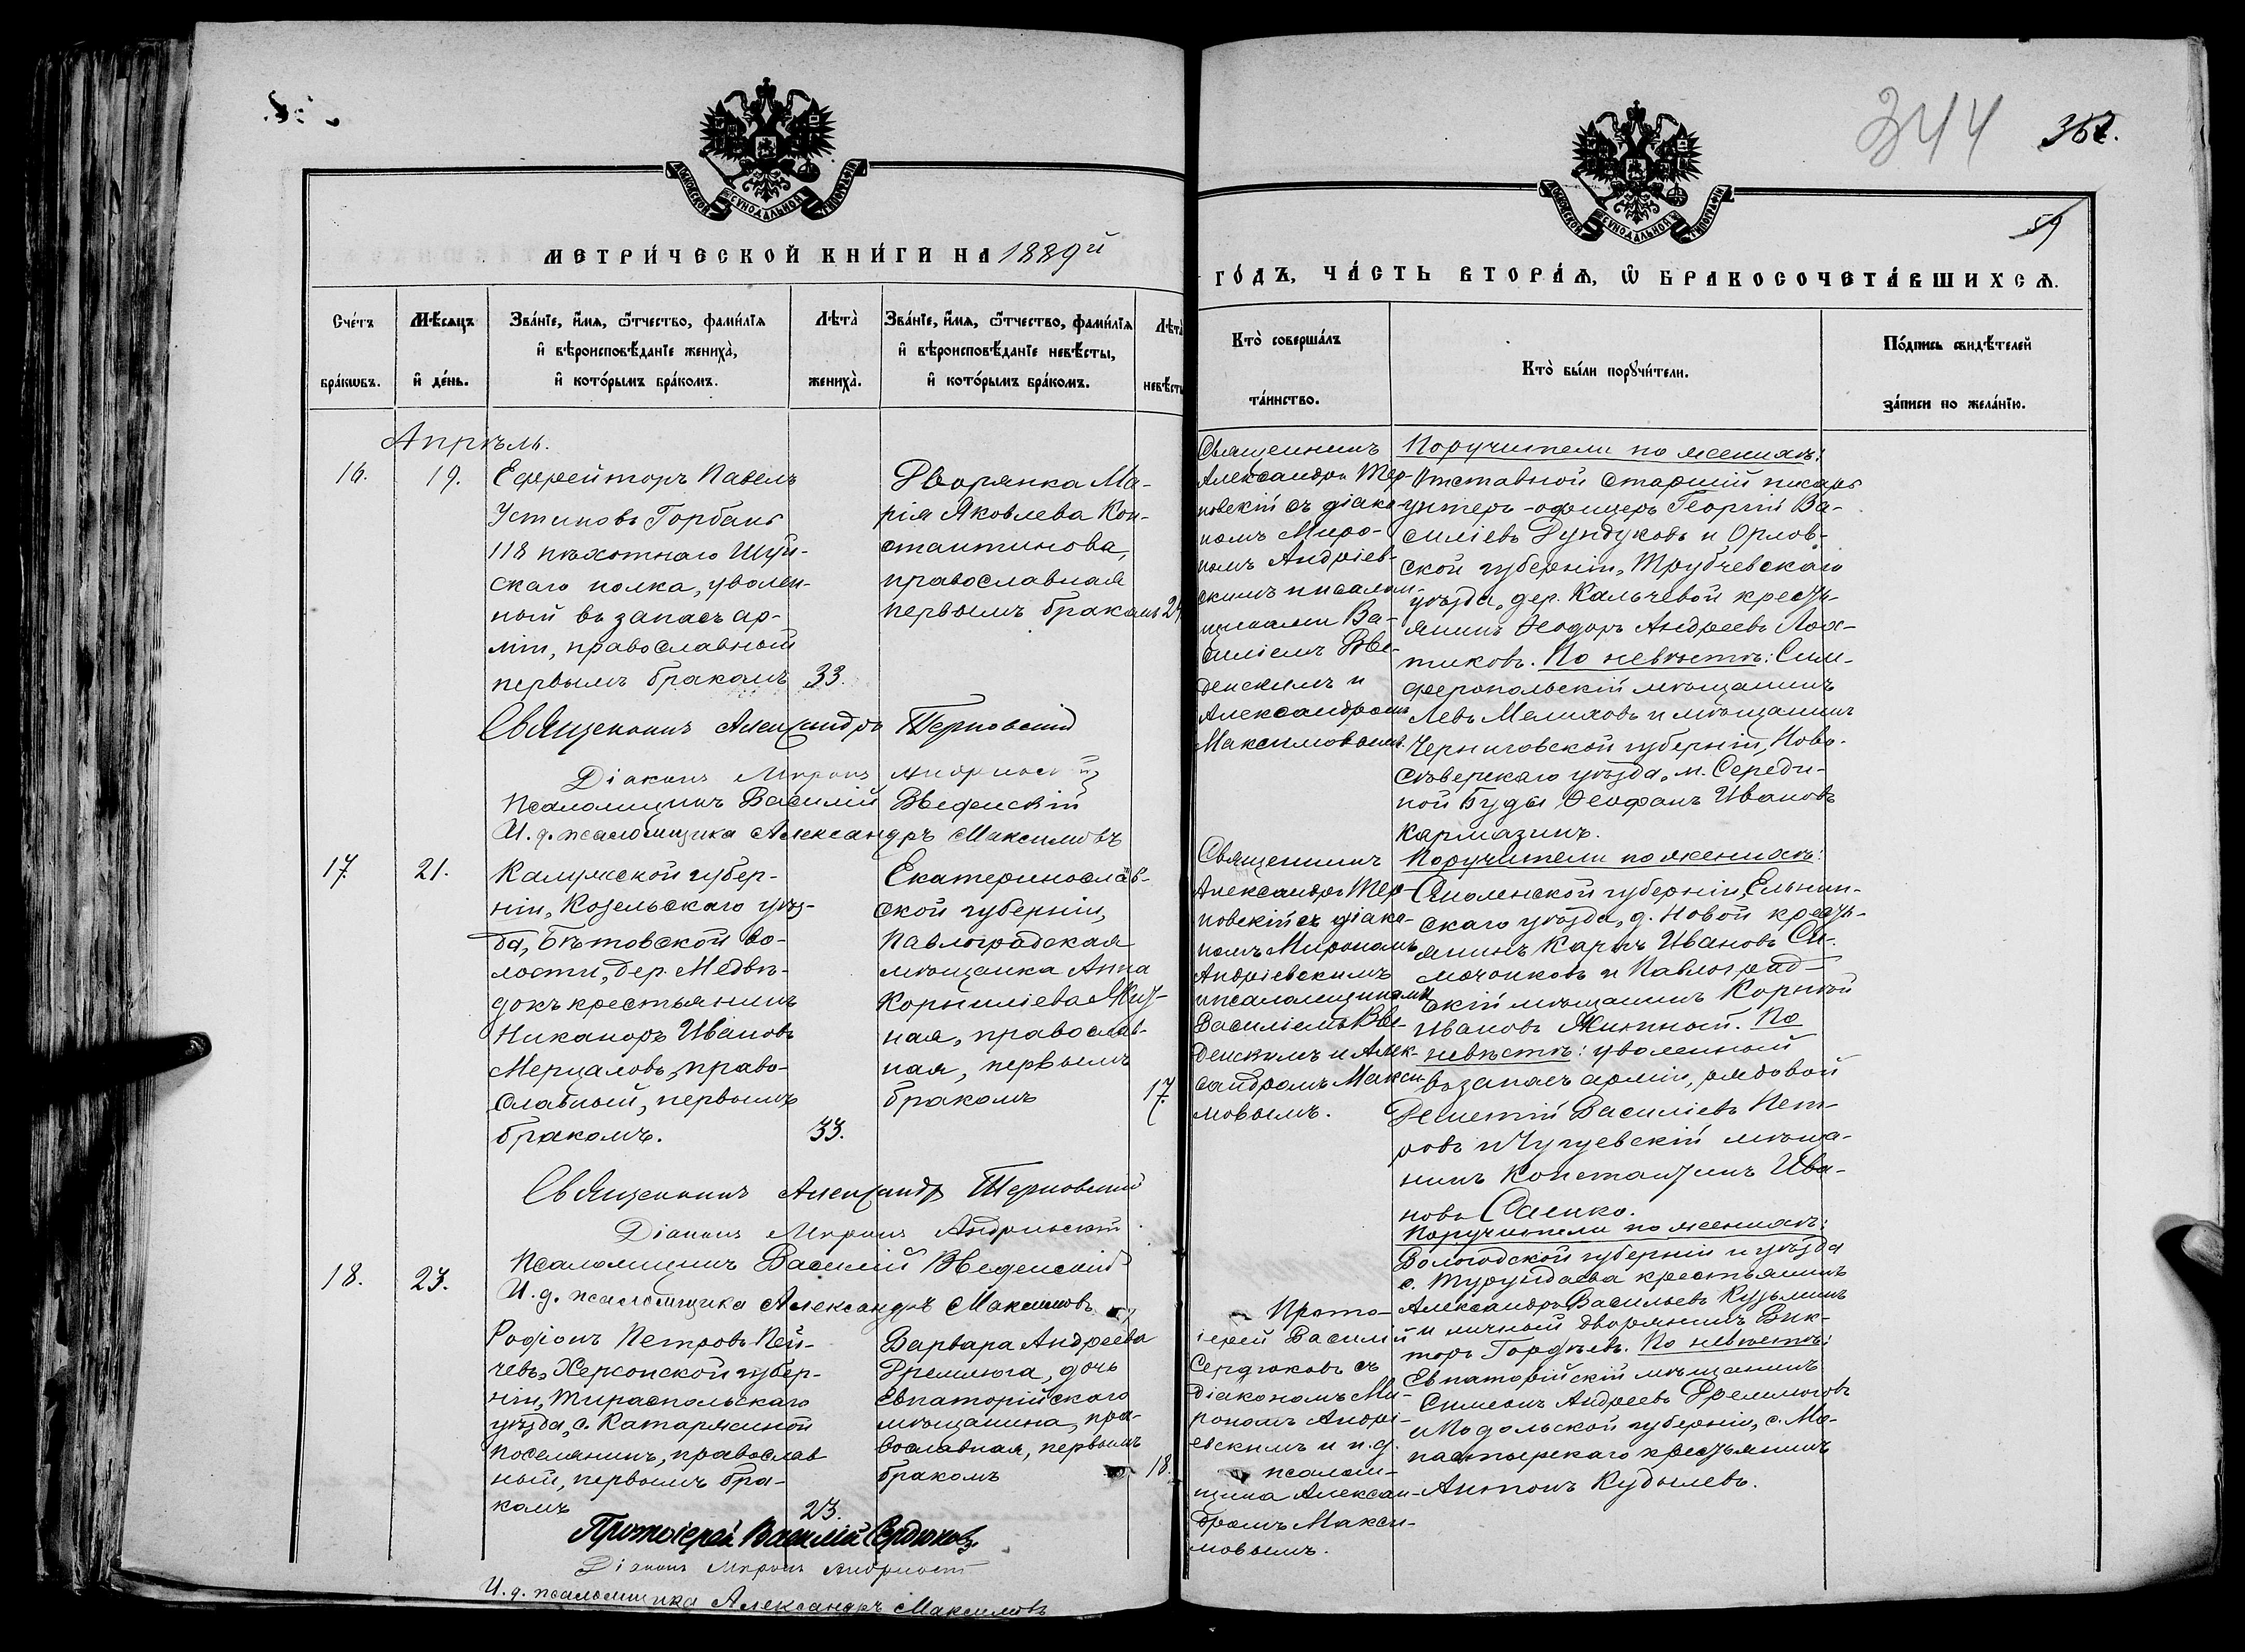 344 367.
59
МОСКОВСКОЙ СѴНОДАЛЬНОЙ ТИПОГРАФІИ
МОСКОВСКОЙ СѴНОДАЛЬНОЙ ТИПОГРАФІИ
МЕТРИ́ЧЕСКОЙ КНИ́ГИ НА 1889й
ГО́ДЪ, ЧА́СТЬ ВТОРА́Ѧ, Ѡ҆ БРАКОСОЧЕТА́ВШИХСѦ.
Сче́тъ
бра́кωвъ.
Мѣ́сѧцъ
и҆ де́нь.
Зва́нїе, и҆́мѧ, ѻ҆́тчество, фами́лїѧ
и҆ вѣроисповѣ́данїе жениха̀,
и҆ кото́рымъ бра́комъ.
Лѣта̀
жениха̀.
Зва́нїе, и҆́мѧ, ѻ҆́тчество, фами́лїѧ
и҆ вѣроисповѣ́данїе невѣ́сты,
и҆ кото́рымъ бра́комъ.
Лѣта̀
невѣ́сты
Кто̀ соверша́лъ
та́инство.
Кто̀ бы́ли порꙋчи́тели.
По́дпись свидѣ́телей
за́писи по жела́нїю.
Апрѣль.
16.
19.
Ефрейторъ Павелъ
Устиновъ Горбань
118 пѣхотнаго Шуй-
скаго полка, уволен-
ный въ запасъ ар-
міи, православный
первымъ бракомъ
33.
Дворянка Ма-
рія Яковлева Кон-
стантинова,
православная
первымъ бракомъ
24
Священникъ
Александръ Тер-
новскій съ діако-
номъ Миро-
номъ Андріев-
скимъ и псалом-
щиками Ва-
силіемъ Вве-
денскимъ и
Александромъ
Максимовымъ.
Поручители по женихѣ:
Отставной старшій писарь
унтеръ-офицеръ Георгій Ва-
силіевъ Дундуковъ и Орлов-
ской губерніи, Трубчевскаго
уѣзда, дер. Кальчевой кресть-
янинъ Ѳеодоръ Андреевъ Лох-
тиковъ. По невѣстѣ: Сим-
феропольскій мѣщанинъ
Левъ Мелиховъ и мѣщанинъ
Черниговской губерніи, Ново-
сѣверскаго уѣзда, м. Середи-
ной Буды Ѳеофанъ Ивановъ
Кармазинъ.
Священникъ Александръ Терновскій
Діаконъ Миронъ Андріевскій
Псаломщикъ Василій Введенскій
И. д. псаломщика Александръ Максимовъ
17.
21.
Калужской губер-
ніи, Козельскаго уѣз-
да, Бѣтовской во-
лости, дер. Медвѣ-
докъ крестьянинъ
Никаноръ Ивановъ
Мерцаловъ, право-
славный, первымъ
бракомъ.
33.
Екатеринослав-
ской губерніи,
Павлоградская
мѣщанка Анна
Корниліева Жит-
ная, православ-
ная, первымъ
бракомъ
17.
Священникъ
Александръ Тер-
новскій съ діако-
номъ Мирономъ
Андріевскимъ
и псаломщиками
Василіемъ Вве-
денскимъ и Алек-
сандромъ Макси-
мовымъ.
Поручители по женихѣ:
Смоленской губерніи, Ельнин-
скаго уѣзда, д. Новой кресть-
янинъ Карпъ Ивановъ Си-
мочонковъ и Павлоград-
скій мѣщанинъ Корній
Ивановъ Житный. По
невѣстѣ: уволенный
въ запасъ арміи, рядовой
Дементій Василіевъ Пет-
ровъ и Чугуевскій мѣща-
нинъ Константинъ Ива-
новъ Саенко.
Священникъ Александръ Терновскій
Діаконъ Миронъ Андріевскій
Псаломщикъ Василій Введенскій
И. д. псаломщика Александръ Максимовъ
18.
23.
Родіонъ Петровъ Пей-
чевъ, Херсонской губер-
ніи, Тираспольскаго
уѣзда, с. Катаржиной
поселянинъ, православ
ный, первымъ бра-
комъ
23.
Варвара Андреева
Дремлюга, дочь
Евпаторійскаго
мѣщанина, пра-
вославная, первымъ
бракомъ
18.
Прото-
іерей Василій
Сердюковъ съ
діакономъ Ми-
рономъ Андрі-
евскимъ и и. д.
псалом-
щика Алексан-
дромъ Макси-
мовымъ.
Поручители по женихѣ:
Вологодской губерніи и уѣзда
с. Турундаева крестьянинъ
Александръ Васильевъ Кузьминъ
и личный дворянинъ Вик-
торъ Гордѣевъ. По невѣстѣ:
Евпаторійскій мѣщанинъ
Симеонъ Андреевъ Дремлюговъ
и Подольской губерніи, с. Мо-
настырскаго крестьянинъ
Антонъ Кудылевъ.
Протоіерей Василій Сердюковъ.
Діаконъ Миронъ Андріевскій
И. д. псаломщика Александръ Максимовъ